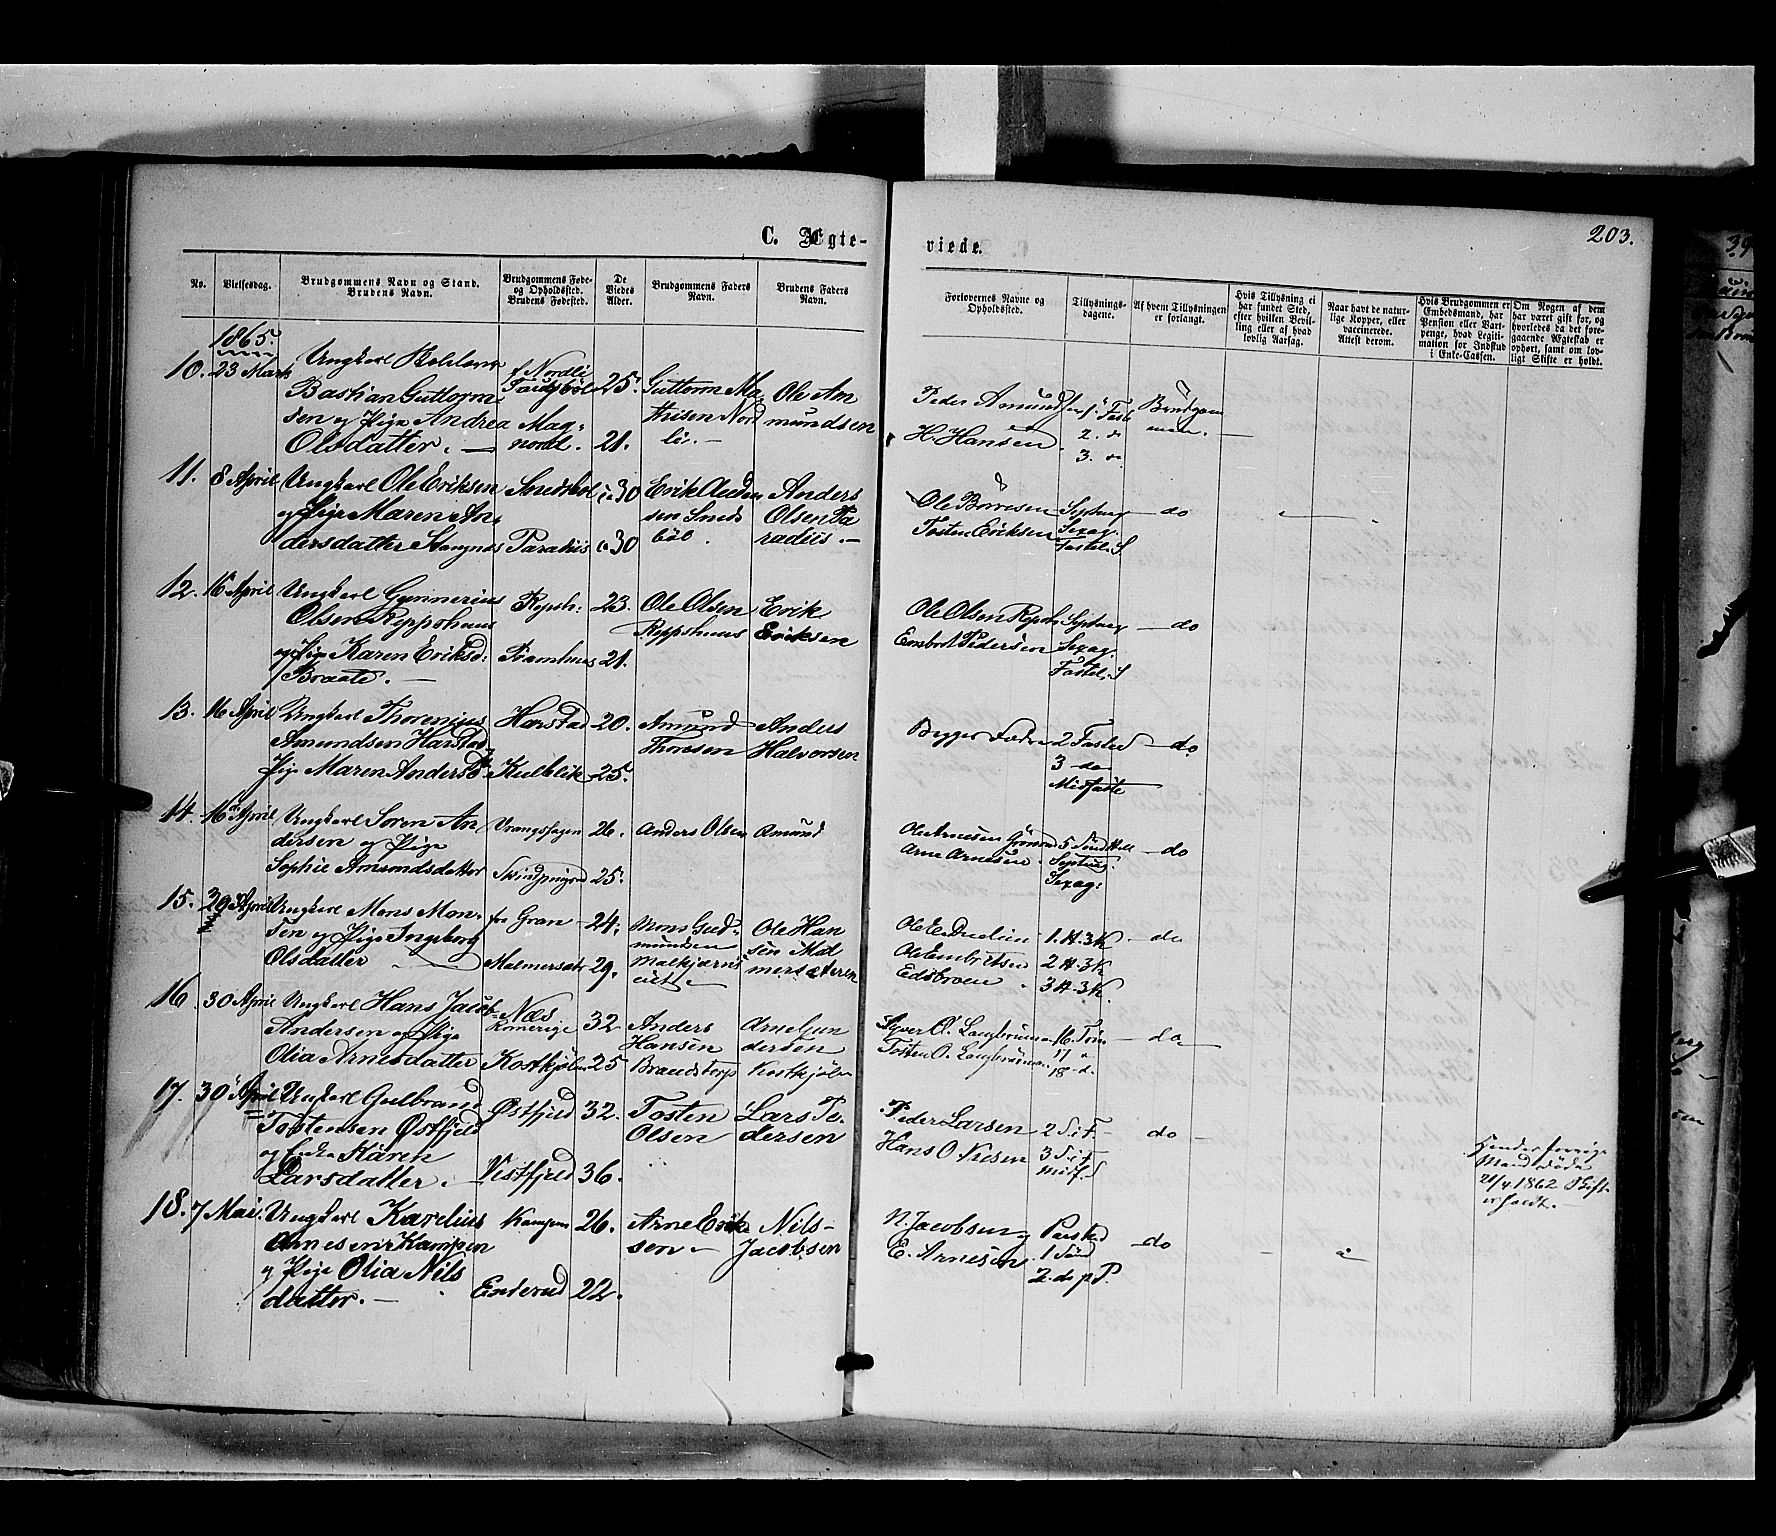 C. Ægte-
viede.
203.
No.
Vielsesdag.
Brudgommens Navn og Stand.
Brudens Navn.
Brudgommens Føde-
og Opholdssted.
Brudens Fødested.
De
Viedes
Alder.
Brudgommens Faders
Navn.
Brudens Faders
Navn.
Forlovernes Navne og
Opholdssted.
Tillysnings-
dagene.
Af hvem Tillysningen
er forlangt.
Hvis Tillysning ei
har fundet Sted,
efter hvilken Bevil-
ling eller af hvad
lovlig Aarsag.
Naar havt de natur-
lige Kopper, eller
vaccinerede.
Attest derom.
Hvis Brudgommen er
Embedsmand, har
Pension eller Vart-
penge, hvad Legiti-
mation for Indskud
i Enke-Cassen.
Om Nogen af dem
har været gift før, og
hvorledes da det fore-
gaaende Ægteskab er
ophørt, samt om lov-
ligt Skifte er holdt.
1865.
10. 23 Marts Ungkarl
Bastian Guttorm-
sen og Pige Andrea
Olsdatter.
f Nordli
Mag-
nord.
25.
21.
Guttorm Ma-
thisen Nord
li.
Ole Am
mundsen
Peder Amundsen
H. Hansen
1. Fast
2. do
3. do
Brudgom
men.
11. 8 April Ungkarl Ole Eriksen
og Pige Maren An-
dersdatter Stangnes
Paradiis
30
30
Erik
sen Sneds
böl.
Anders
Olsen Pa
radiis.
Ole Börresen
Tosten Eriksen
Septuag
Sexag.
Fastel. S
do
12. 16 April Ungkarl Gunnerius
Olsen Reppshuus
og Pige Karen Eriksd:
Braate.
Repsh:
23.
21.
Ole Olsen
Reppshuus
Erik
Eriksen
Ole Olsen Repsh
Embret Pedersen
Septuag
Sexag.
Fastel. S
do
13. 16 April Ungkarl Thorenius
Amundsen Harstad
Pige Maren Andersd
Harstad
Kulblik
20.
25.
Amund
Thoresen
Anders
Halvorsen
Begges Fædre
2 Fastes
3 do
Midfaste
do
14. 16 April Ungkarl Soren An
dersen og Pige
Sophie Amundsdatter
Vrangshagen
26.
25.
Anders Olsen
Amund
Ole Arnesen
Arne Arnesen
5 Sønd
Septuag.
Sexag:
do
15. 29 April Ungkarl Mons Mon-
sen og Pige Ingeborg
Olsdatter
fra Gran
Malmersæt
24.
29.
Mons Gud-
mundsen
Ole Han
sen Mal
mersæteren
Ole Embretsen
1. H. 3K
2 H. 3K
3 H. 3K.
do
16 30 April Ungkarl Hans Jacob
Andersen og Pige
Olia Arnesdatter
Næs
Romerige
Kostkjøln
32
25
Anders
Hansen
Brandstorp
Arne Gun
dersen
Kostkjøln
Syver O. Langbruun
Tosten O. Langbruun
16. Trin
17 "
18 - d.
do
17. 30 April Ungkarl Gulbrand
Tostensen Østfjeld
og Enke Karen
Larsdatter.
Østfjeld
Vestfjeld
32.
36.
Tosten
Olsen
Lars Pe-
dersen
Peder Larsen
Hans O.
2 S. i F.
3 S. i F
Mitf. S
do
Hendes forrige
Mand døde
21/4 1862 Skift
er holdt.
18. 7 Mai. Ungkarl Karelius
Arnesen Kampen
og Pige Olia Nils
datter.
Kampen
Enderud
26.
22.
Arne Erik
sen
Nils
Jacobsen
N. Jacobsen
E. Arnesen
1 Sønd
2. do p P.
do